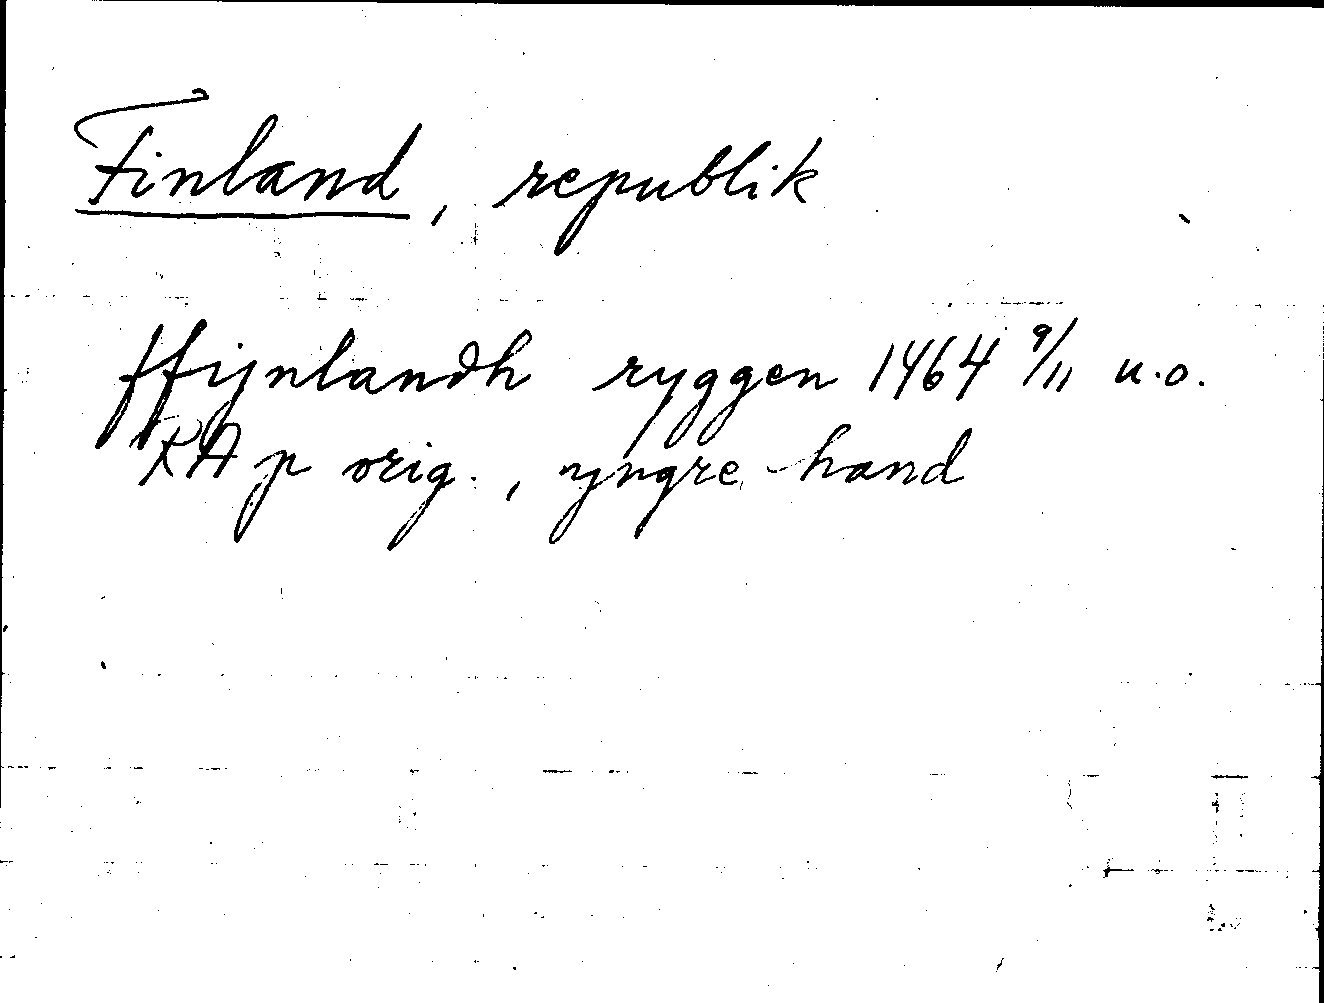 Finland, republik
ffijnlandh ryggen 1464 9/11 u.o.
RA p orig., yngre hand